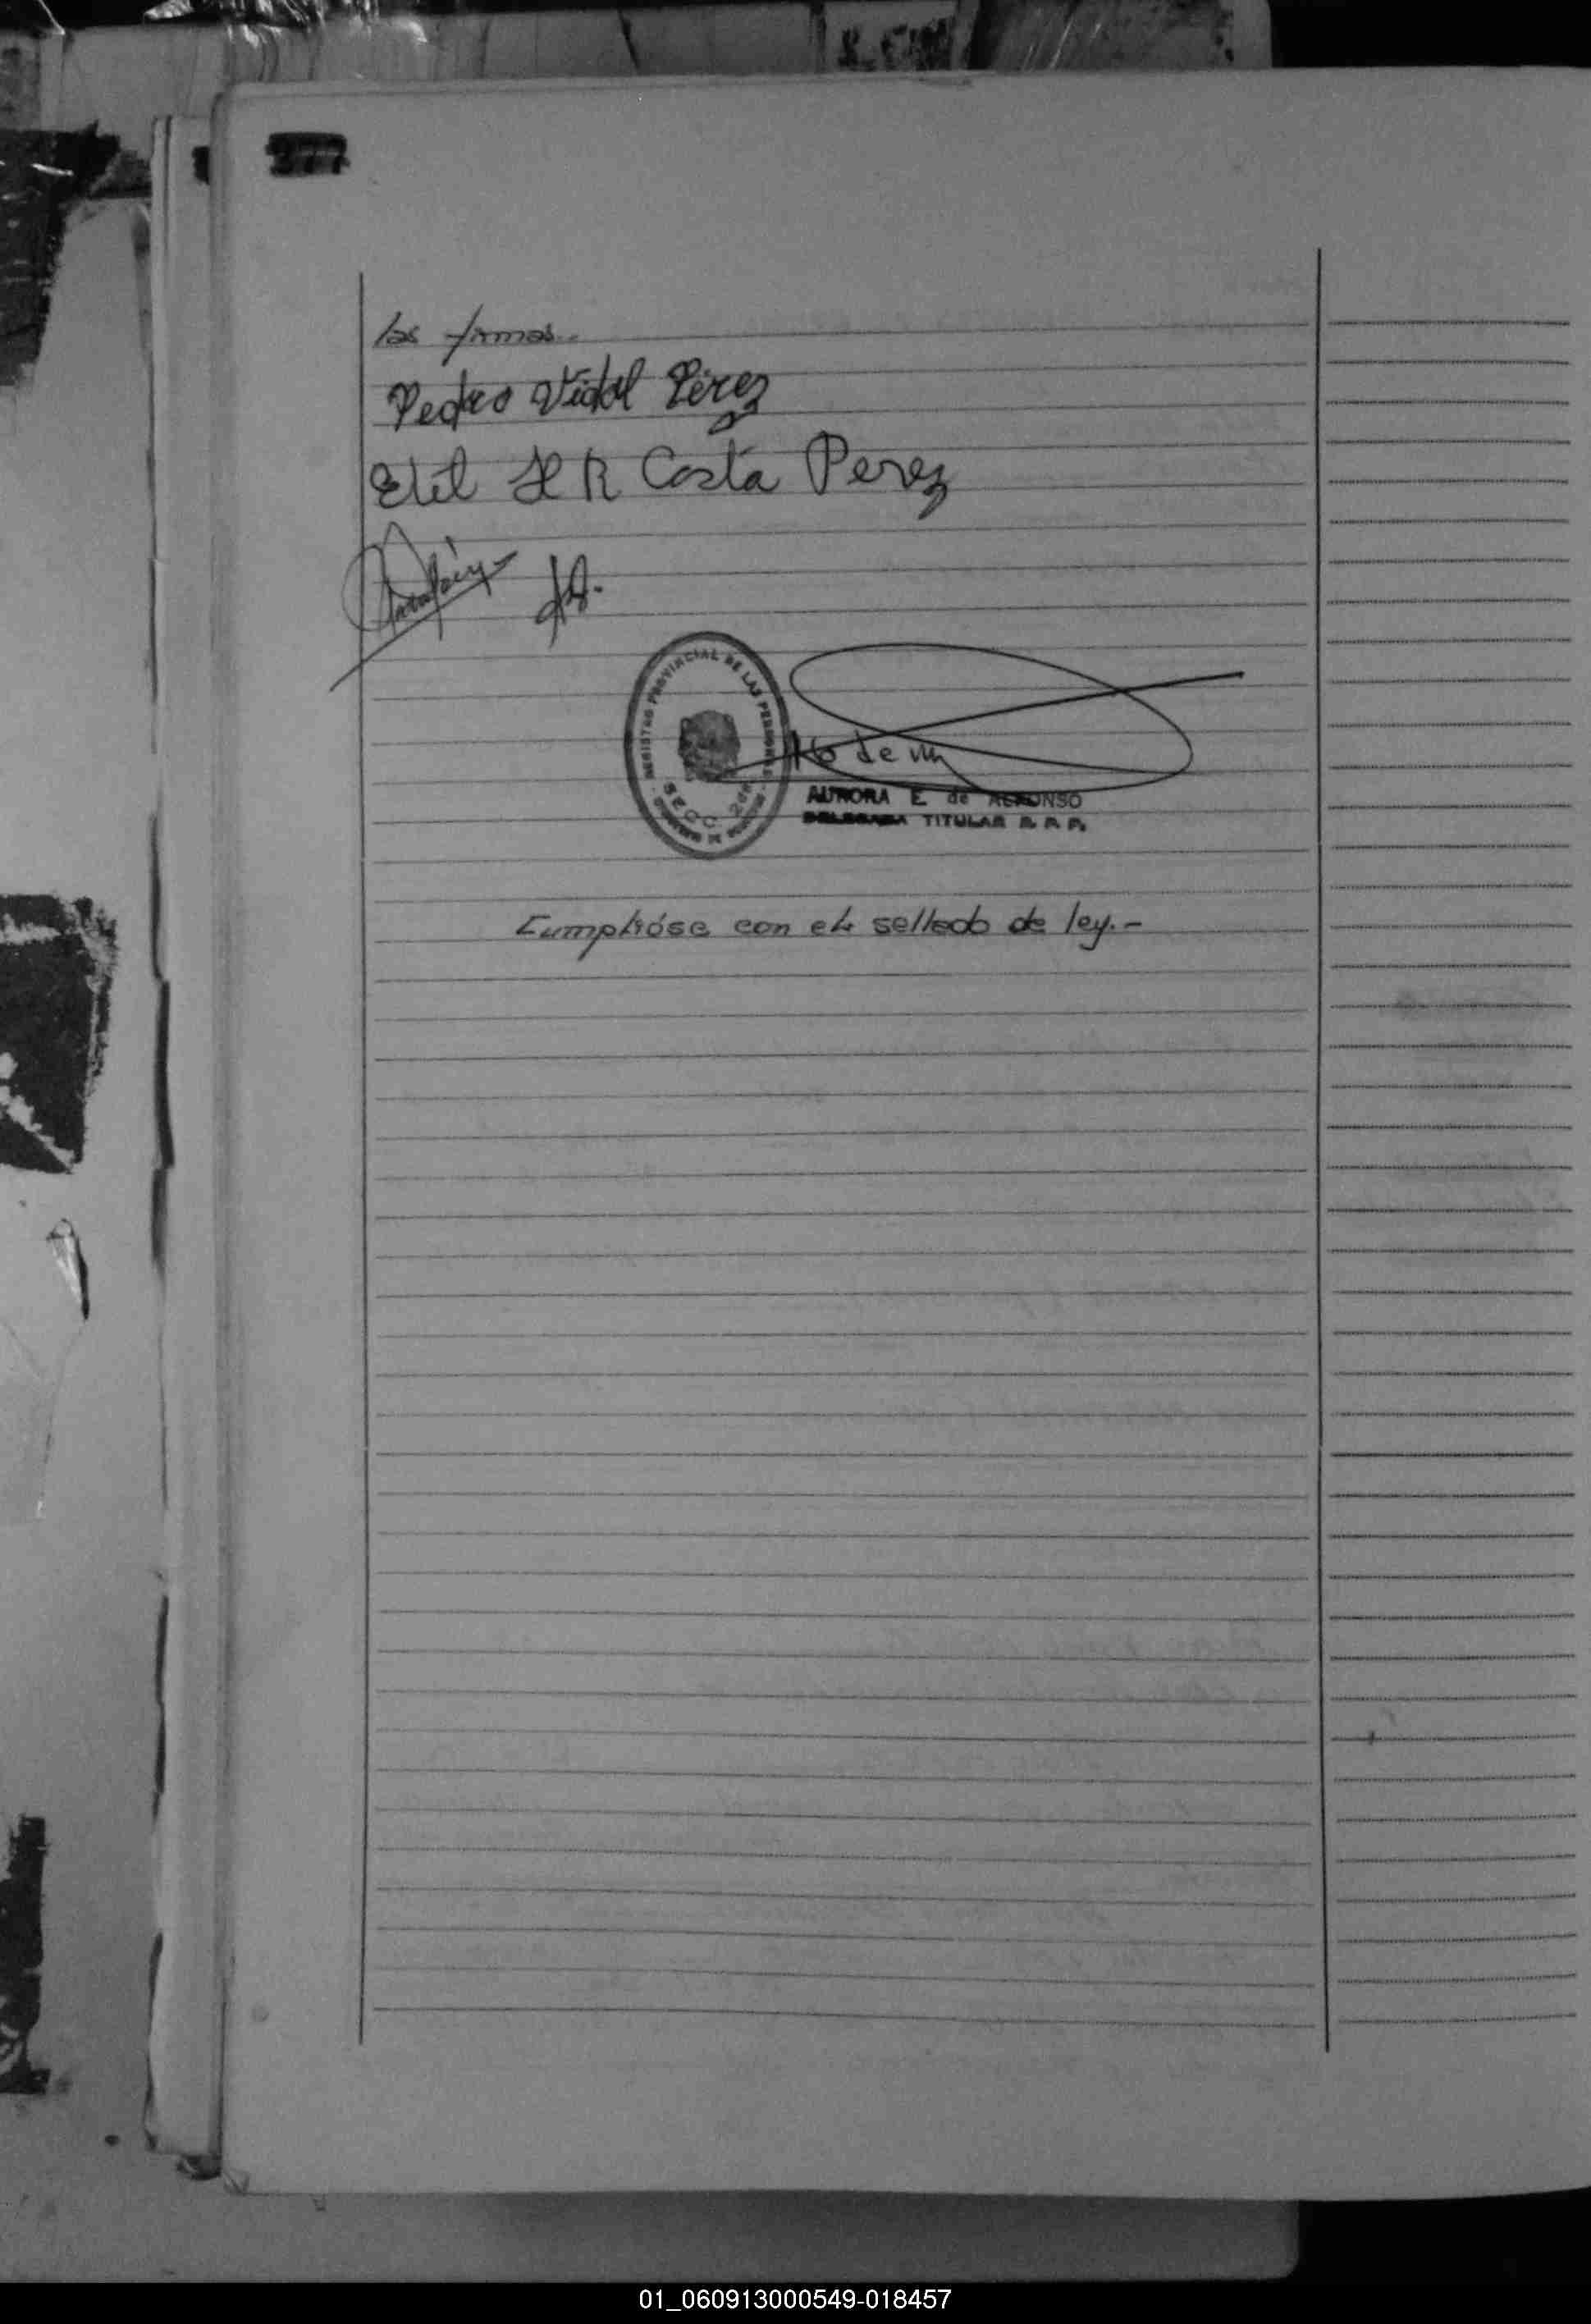 377
las firmas.-
Pedro Vidal Pérez
Etel H R Costa Perez
REGISTRO PROVINCIAL DE LAS PERSONAS
SECC. 2da
AURORA E. de ALFONSO
DELEGADA TITULAR R. P. P.
Cumplióse con el sellado de ley.-
01_060913000549-018457